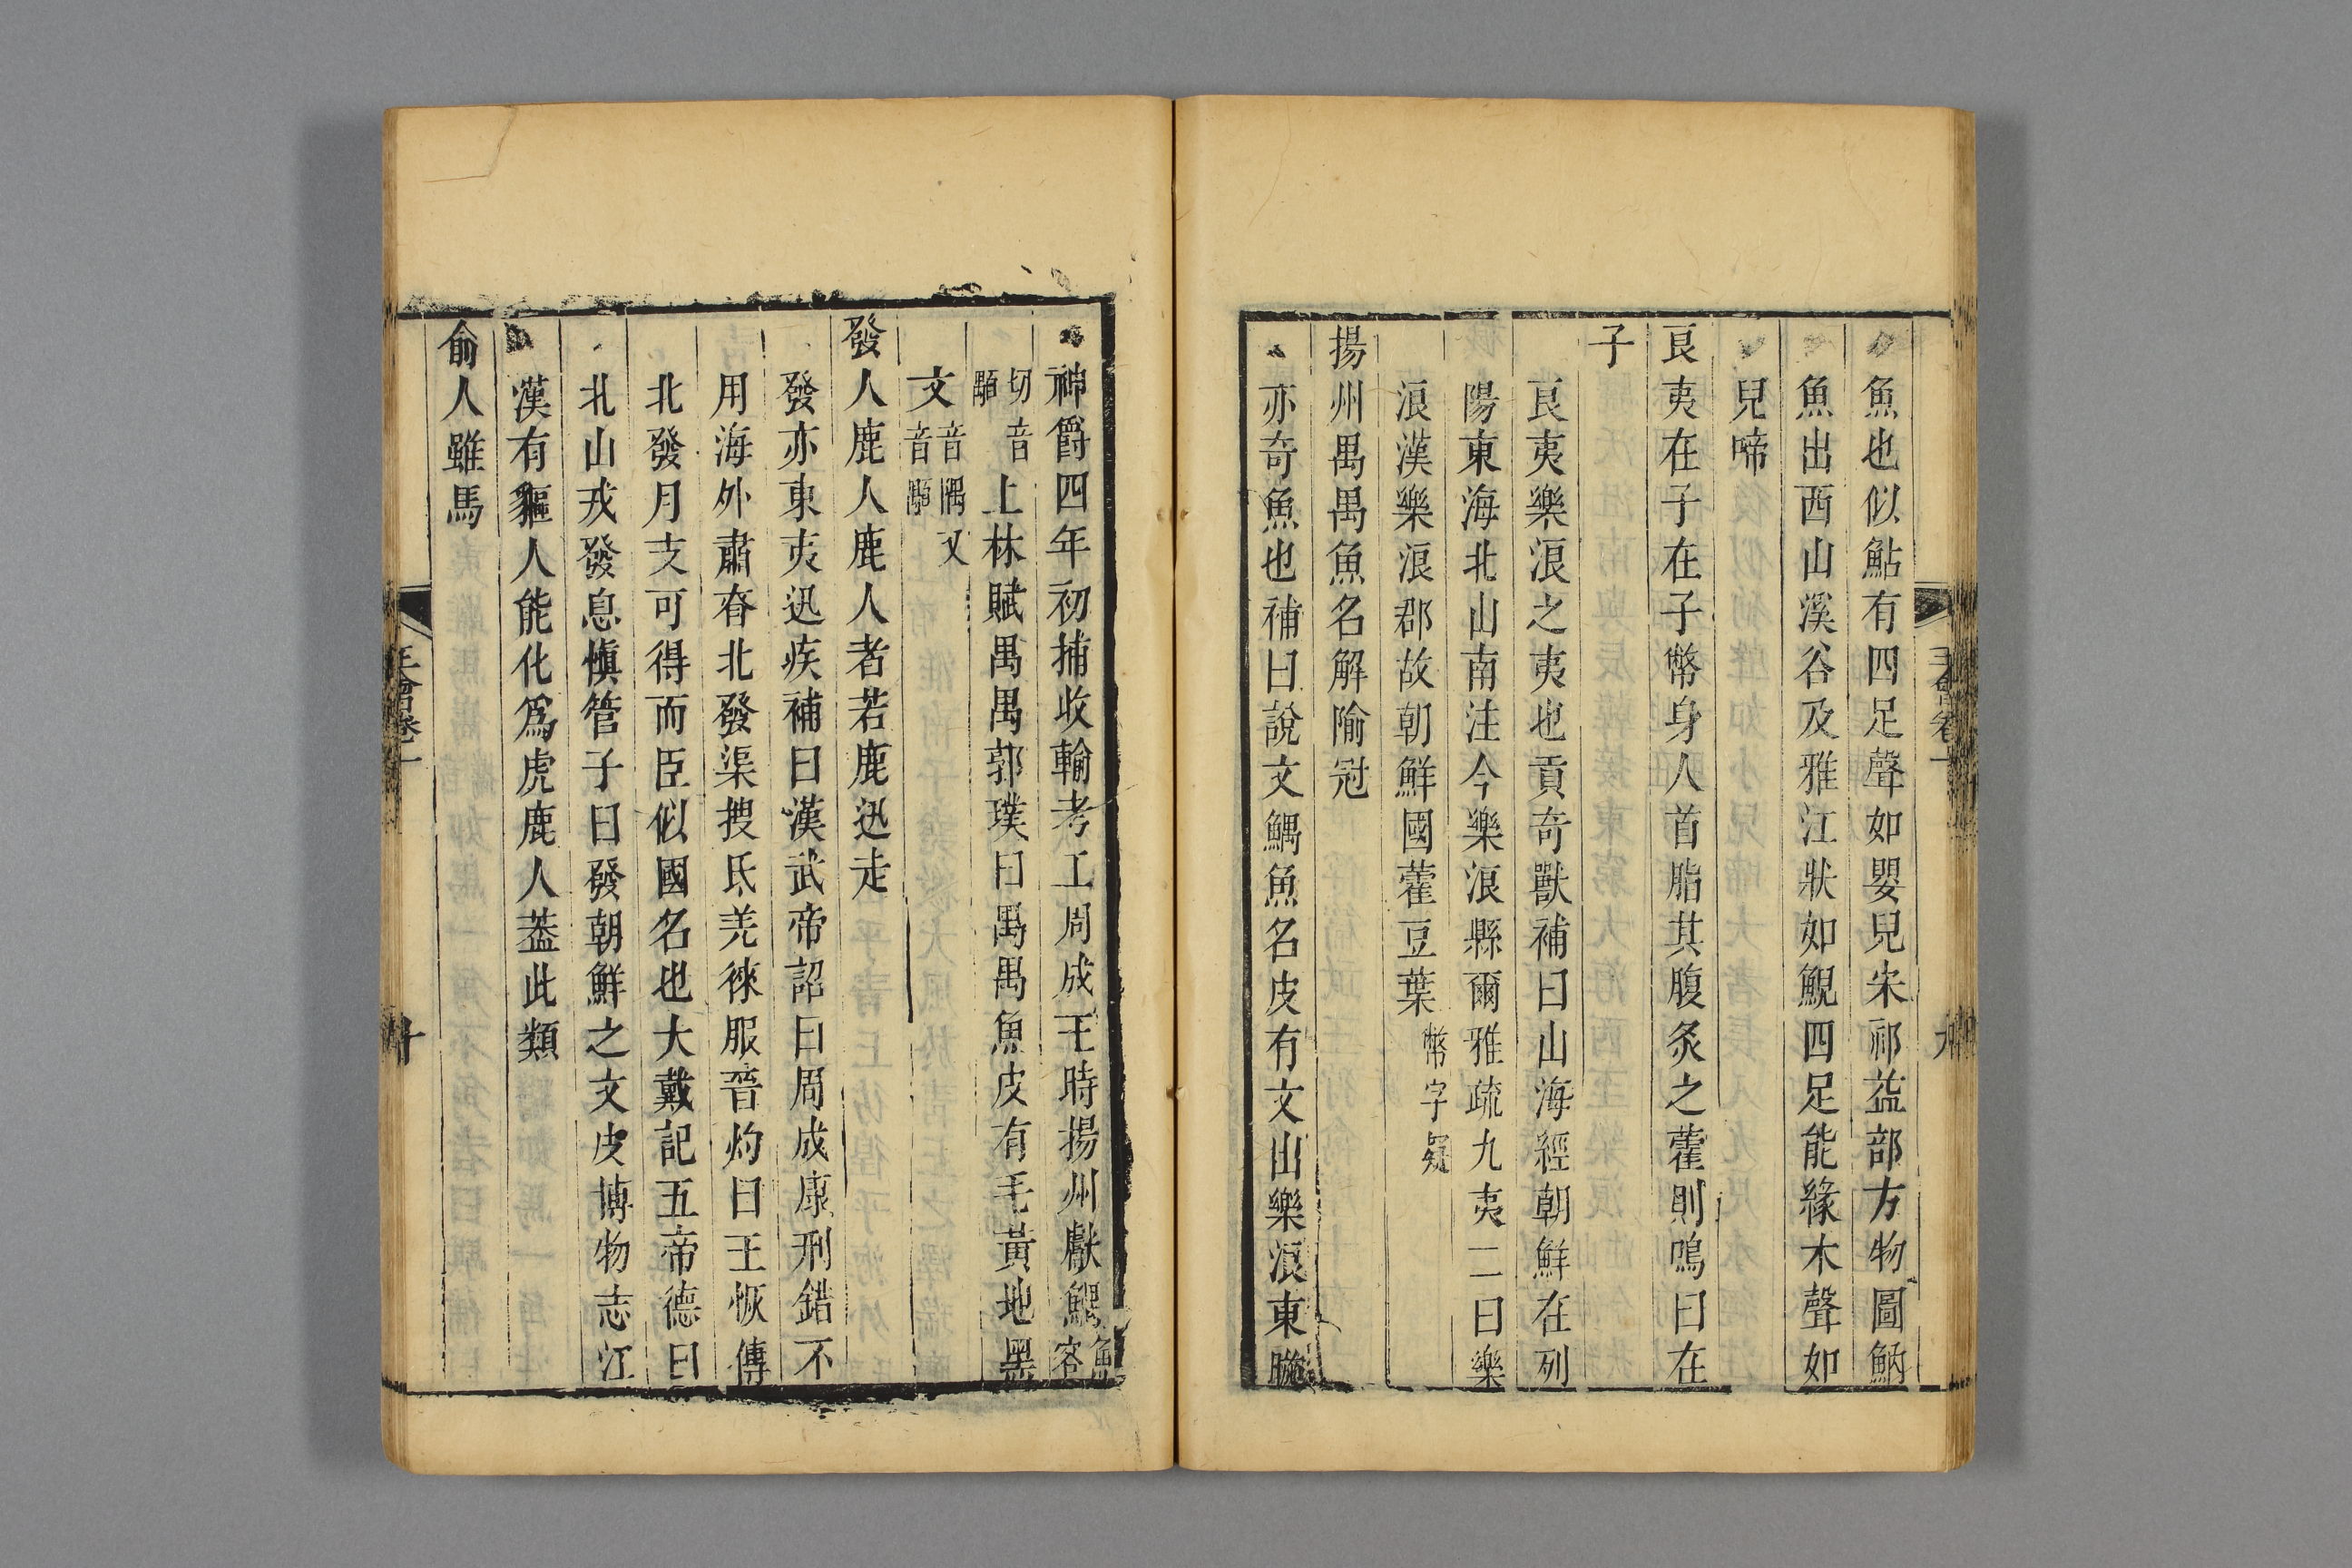 魚也似鮎有四足聲如嬰兒宋祁益部方物圖魶
魚出西山溪谷及雅江狀如鯢四足能緣木聲如
兒啼
良夷在子在子幣身人首脂其腹炙之藿則鳴曰在
子
良夷樂浪之夷也貢奇獸補曰山海經朝鮮在列
陽東海北山南注今樂浪縣爾雅疏九夷二曰樂
浪漢樂浪郡故朝鮮國藿豆葉幣字疑
揚州禺禺魚名解隃冠
亦奇魚也補曰說文鰅魚名皮有文出樂浪東暆
神爵四年初捕收輸考工周成王時揚州獻鰅魚容
切音
顒
上林賦禺禺郭璞曰禺禺魚皮有毛黃地黑
文音隅又
音顒
發人鹿人鹿人者若鹿迅走
發亦東夷迅疾補曰漢武帝詔曰周成康刑錯不
用海外肅眘北發渠搜氐羌徠服晉灼曰王恢傳
北發月支可得而臣似國名也大戴記五帝德曰
北山戎發息愼管子曰發朝鮮之文皮博物志江
漢有貙人能化爲虎鹿人葢此類
俞人雖馬
王會卷一
九
王會卷一
十